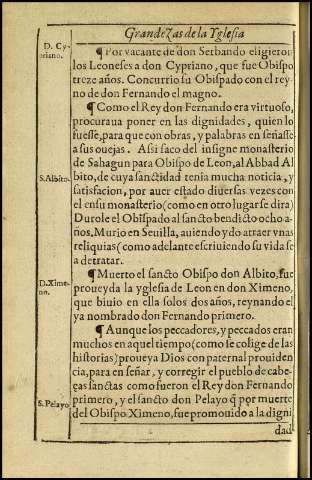 Grandezas de la Yglesia
D. Cy-
priano.
¶ Por vacante de don Serbando eligieron
los Leoneses a don Cypriano, que fue Obispo
treze años. Concurrio su Obispado con el rey-
no de don Fernando el magno.
¶ Como el Rey don Fernando era virtuoso,
procuraua poner en las dignidades, quien lo
fuesse, para que con obras, y palabras en señasse
a sus ouejas. Assi saco del insigne monasterio
de Sahagun para Obispo de Leon, al Abbad Al
S. Albito.
bito, de cuya sanctidad tenia mucha noticia, y
satisfacion, por auer estado diuersas vezes con
el en su monasterio (como en otro lugar se dira)
Durole el Obispado al sancto bendicto ocho a-
ños. Murio en Seuilla, auiendo ydo atraer vnas
reliquias (como adelante escriuiendo su vida se
a de tratar.
¶ Muerto el sancto Obispo don Albito, fue
D. Xime-
no.
proueyda la yglesia de Leon en don Ximeno,
que biuio en ella solos dos años, reynando el
ya nombrado don Fernando primero.
¶ Aunque los peccadores, y peccados eran
muchos en aquel tiempo (como se colige de las
historias) proueya Dios con paternal prouiden
cia, para en señar, y corregir el pueblo de cabe-
ças sanctas como fueron el Rey don Fernando
S. Pelayo
primero, y el sancto don Pelayo q̃ por muerte
del Obispo Ximeno, fue promouido a la digni
dad